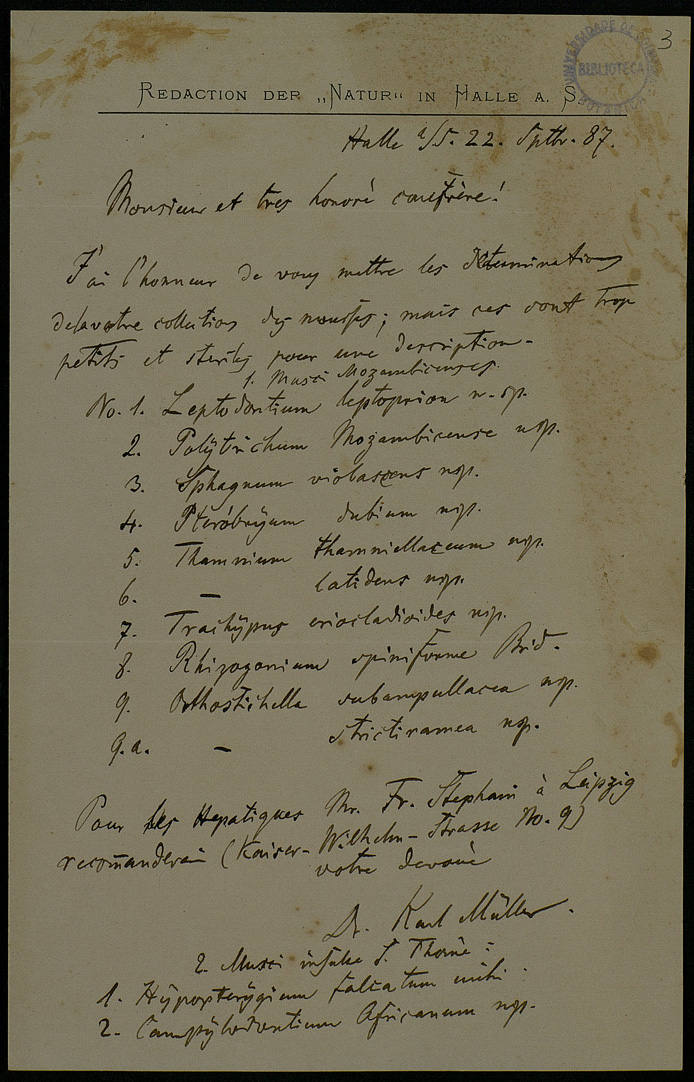 3
UNIVERSIDADE DE COIMBRA
BIBLIOTECA
BOTANICA
REDACTION DER „NATUR“ IN HALLE A. S.
Halle a/S. 22. Sptbr. 87.
Monsieur et tres honoré confrère!
J'ai l'honneur de vous mettre les determinations
de la votre collection des mousses; mais ces sont trop
petits et steriles pour une description.
1. Musci Mozambicenses.
No. 1. Leptodontium leptoprion n. sp.
2. Polytrichum Mozambicense nsp.
3. Sphagnum violascens nsp.
4. Pteróbryum dubium nsp.
5. Thamnium thamniellaceum nsp.
6. — latidens nsp.
7. Trachypus eriocladioides nsp.
8. Rhizogonium spiniforme Brid.
9. Orthostichella subampullacea nsp.
9.a. — strictiramea nsp.
Pour les Hepatiques Mr. Fr. Stephani à Leipzig
recomanderai (Kaiser-Wilhelm-Strasse No. 9)
votre devoué
Dr. Karl Müller.
2. Musci insulae S. Thomé:
1. Hypopterygium falcatum mihi.
2. Campylodontium Africanum nsp.